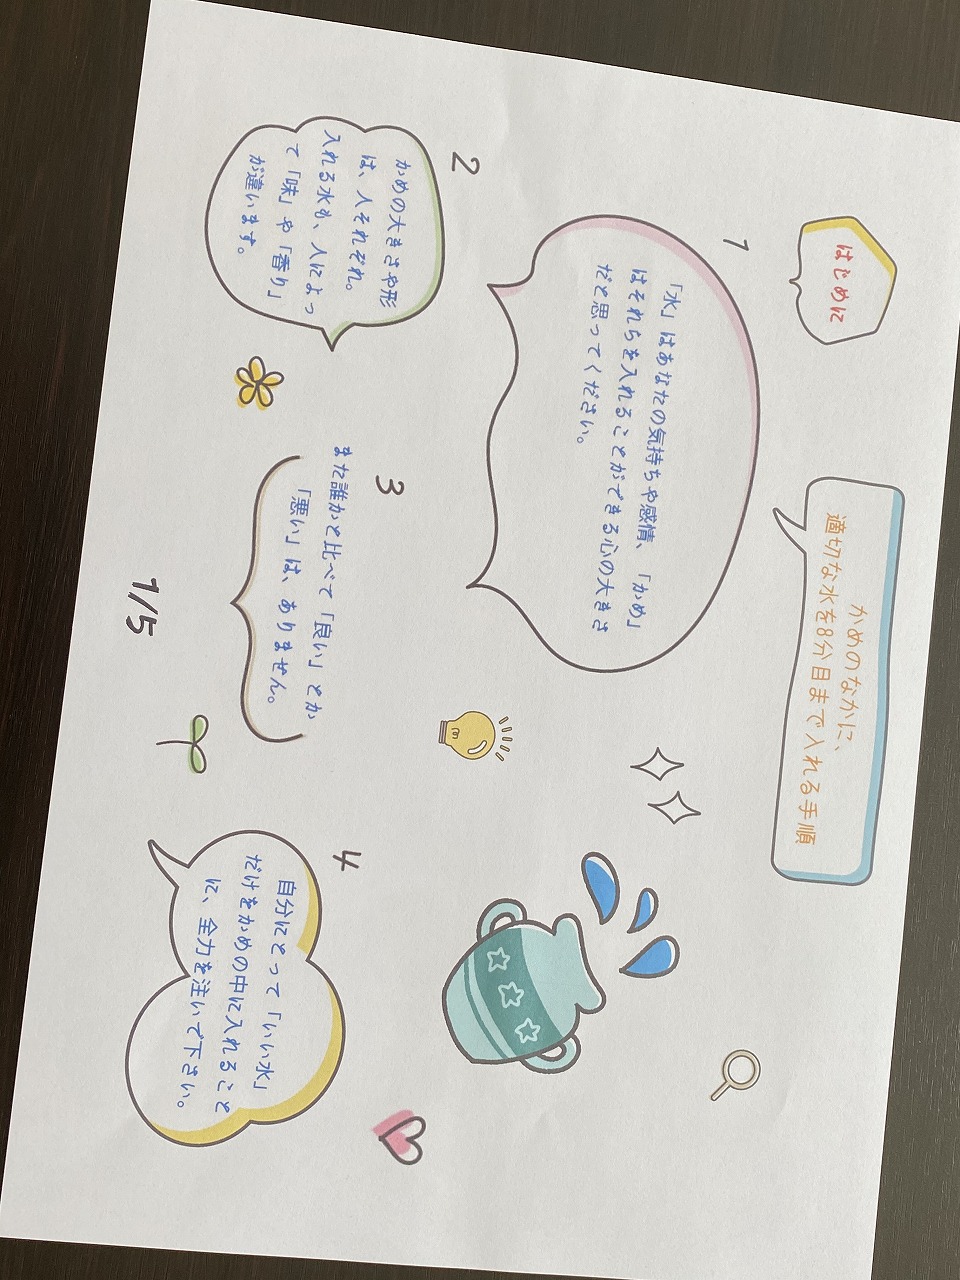 はじめに
かめのなかに、
適切な水を8分目まで入れる手順
1
「水」はあなたの気持ちや感情、「かめ」
はそれらを入れることができる心の大きさ
だと思ってください。
2
かめの大きさや形
は、人それぞれ。
入れる水も、人によっ
て「味」や「香り」
が違います。
3
また誰かと比べて「良い」とか
「悪い」は、ありません。
4
自分にとって「いい水」
だけをかめの中に入れること
に、全力を注いで下さい。
1/5